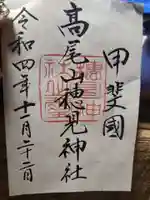 甲斐國
高尾山穂見神社
令和四年十二月二十二日